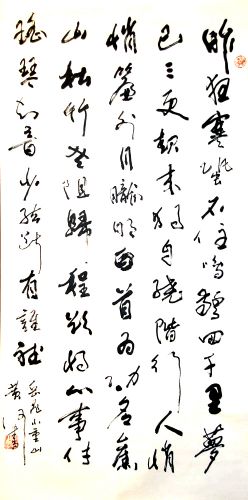 昨夜寒蛩不住鳴驚回千里夢
已三更起来獨自繞階行人悄
悄簾外月朧明白首為功名舊
山松竹老阻歸程欲將心事付
瑶琴知音少絃斷有誰聽
岳飛小重山